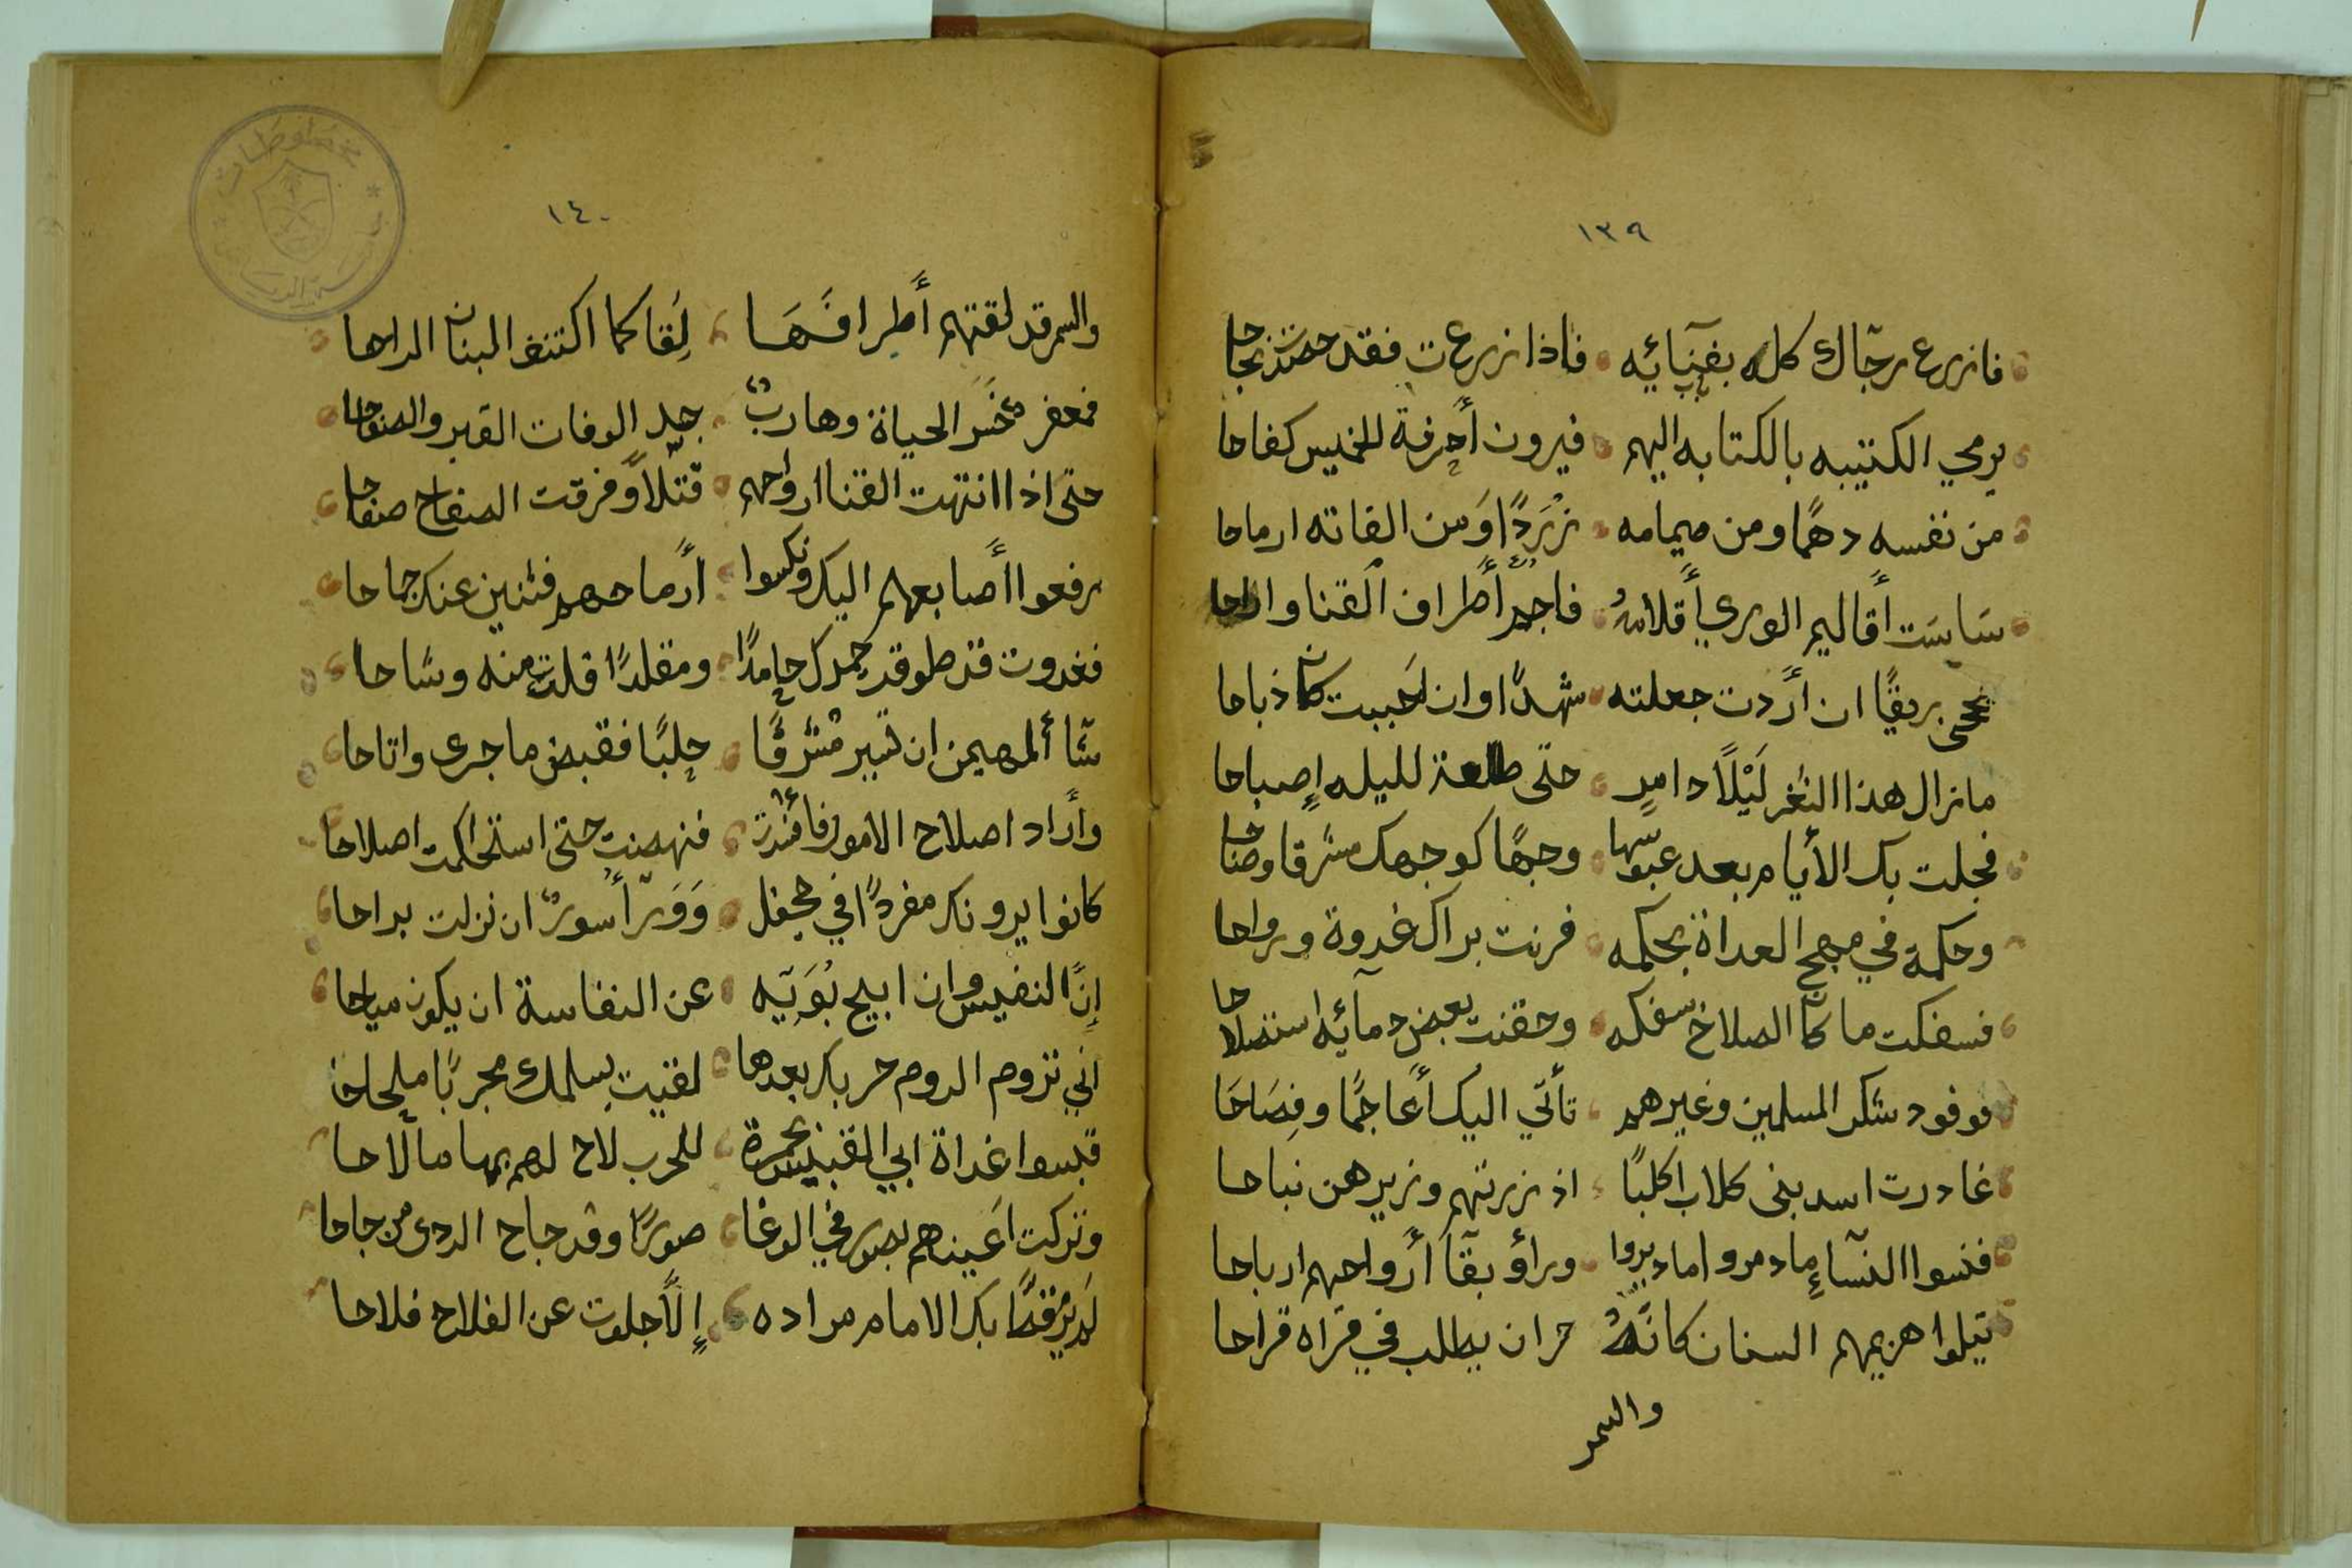 ١٣٩
فازرع رجّالك كله بفنِآئِه فاذا زرعت فقد حصدت نجاحا
يرمي الكتيبه بالكتابه اليهم فيرون أحرفة الخميس كفاحا
من نفسه دهمًا ومن ميمامه زَرَدًا وَمن الفاته ارماحا
سَايسَت أقاليم الوري أقلامهُ فاجد أطراف القنا واراحا
ريقًا ان أردت جعلته شهدًا وان احببت كان ذباحا
مازال هذا الثغر لَيْلًا دامرٍ حتى طلعة لليله إصباحا
فجلت بك الأيام بعد عبوسها وجهًا كوجهك مشرقا وضاحا
وحكمة في مهج العداة بحكمه فرنت براك غدوة ورواحا
فسفكت ما كان الصلاح سفكه وحقنت بعض دمآئِه استصلاحا
فوفود شكر المسلمين وغيرهم تأتي اليك أعاجمًا وفِصَاحَا
غادرت اسد بنى كلاب اكلبًا اذ زرتهم وزيرهن نباحا
فنسوا النسآءِ مادمروا مادبروا ورأؤ بقآ أرواحهم ارباحا
تيلوا هزيمهم السنان كانّهُ حران يطلب في قراه قراحا
والسمر
١٤٠
والسمر قد لقتهم أطرافَهَا لِقا كما اكتنف البنان الراحا
فمعفر خسر الحياة وهاربٌ جدٍ الوفات القبر والصفاحا
حتى اذا انتهت القنا ارواحهم قتلًا وفرقت الصفاح صفاحا
رفعوا أصابعهم اليك ونكسوا أرماحهم فثنين عنك جماحا
فغدوت قد طوقد حمدك حامدًا ومقلدًا قلدت منه وشاحا
شآ المهيمن ان تسير مشرقًا حلبًا فقبض ماجرى واتاحا
وأراد اصلاح الامور فأفسدت فنهضت حتى استحكمت اصلاحا
كانوا يرونك مفردًا في جحفل وَوَرآ سورٌ ان نزلت براحا
إنّ النفيس وان ابيح بُوَيِّه عن النفاسة ان يكون مباحا
اني تروم الروم حربك بعدها لقيت بسلمك مجربًا ملحاحا
قبسوا غداة ابي القبيس بجمرة للحرب لاح لهم بها مالاحا
وتركت اعينهم بصور في الوغا صورًا وقد جاح الردى من جاحا
لم يرم قطّ بك الامام مراده إلّا جلوت عن الفلاح فلاحا
مخطوطات